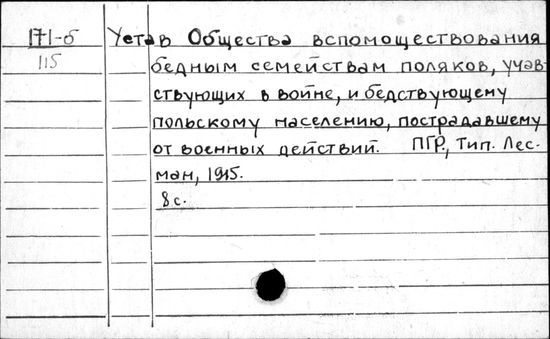 171-б Устав Общества вспомоществования
115 бедным семействам поляков, учав-
ствующих в войне, и бедствующему
польскому населению, пострадавшему
от военных действий. ПГР., Тип. Лес.
ман, 1915.
8 с.